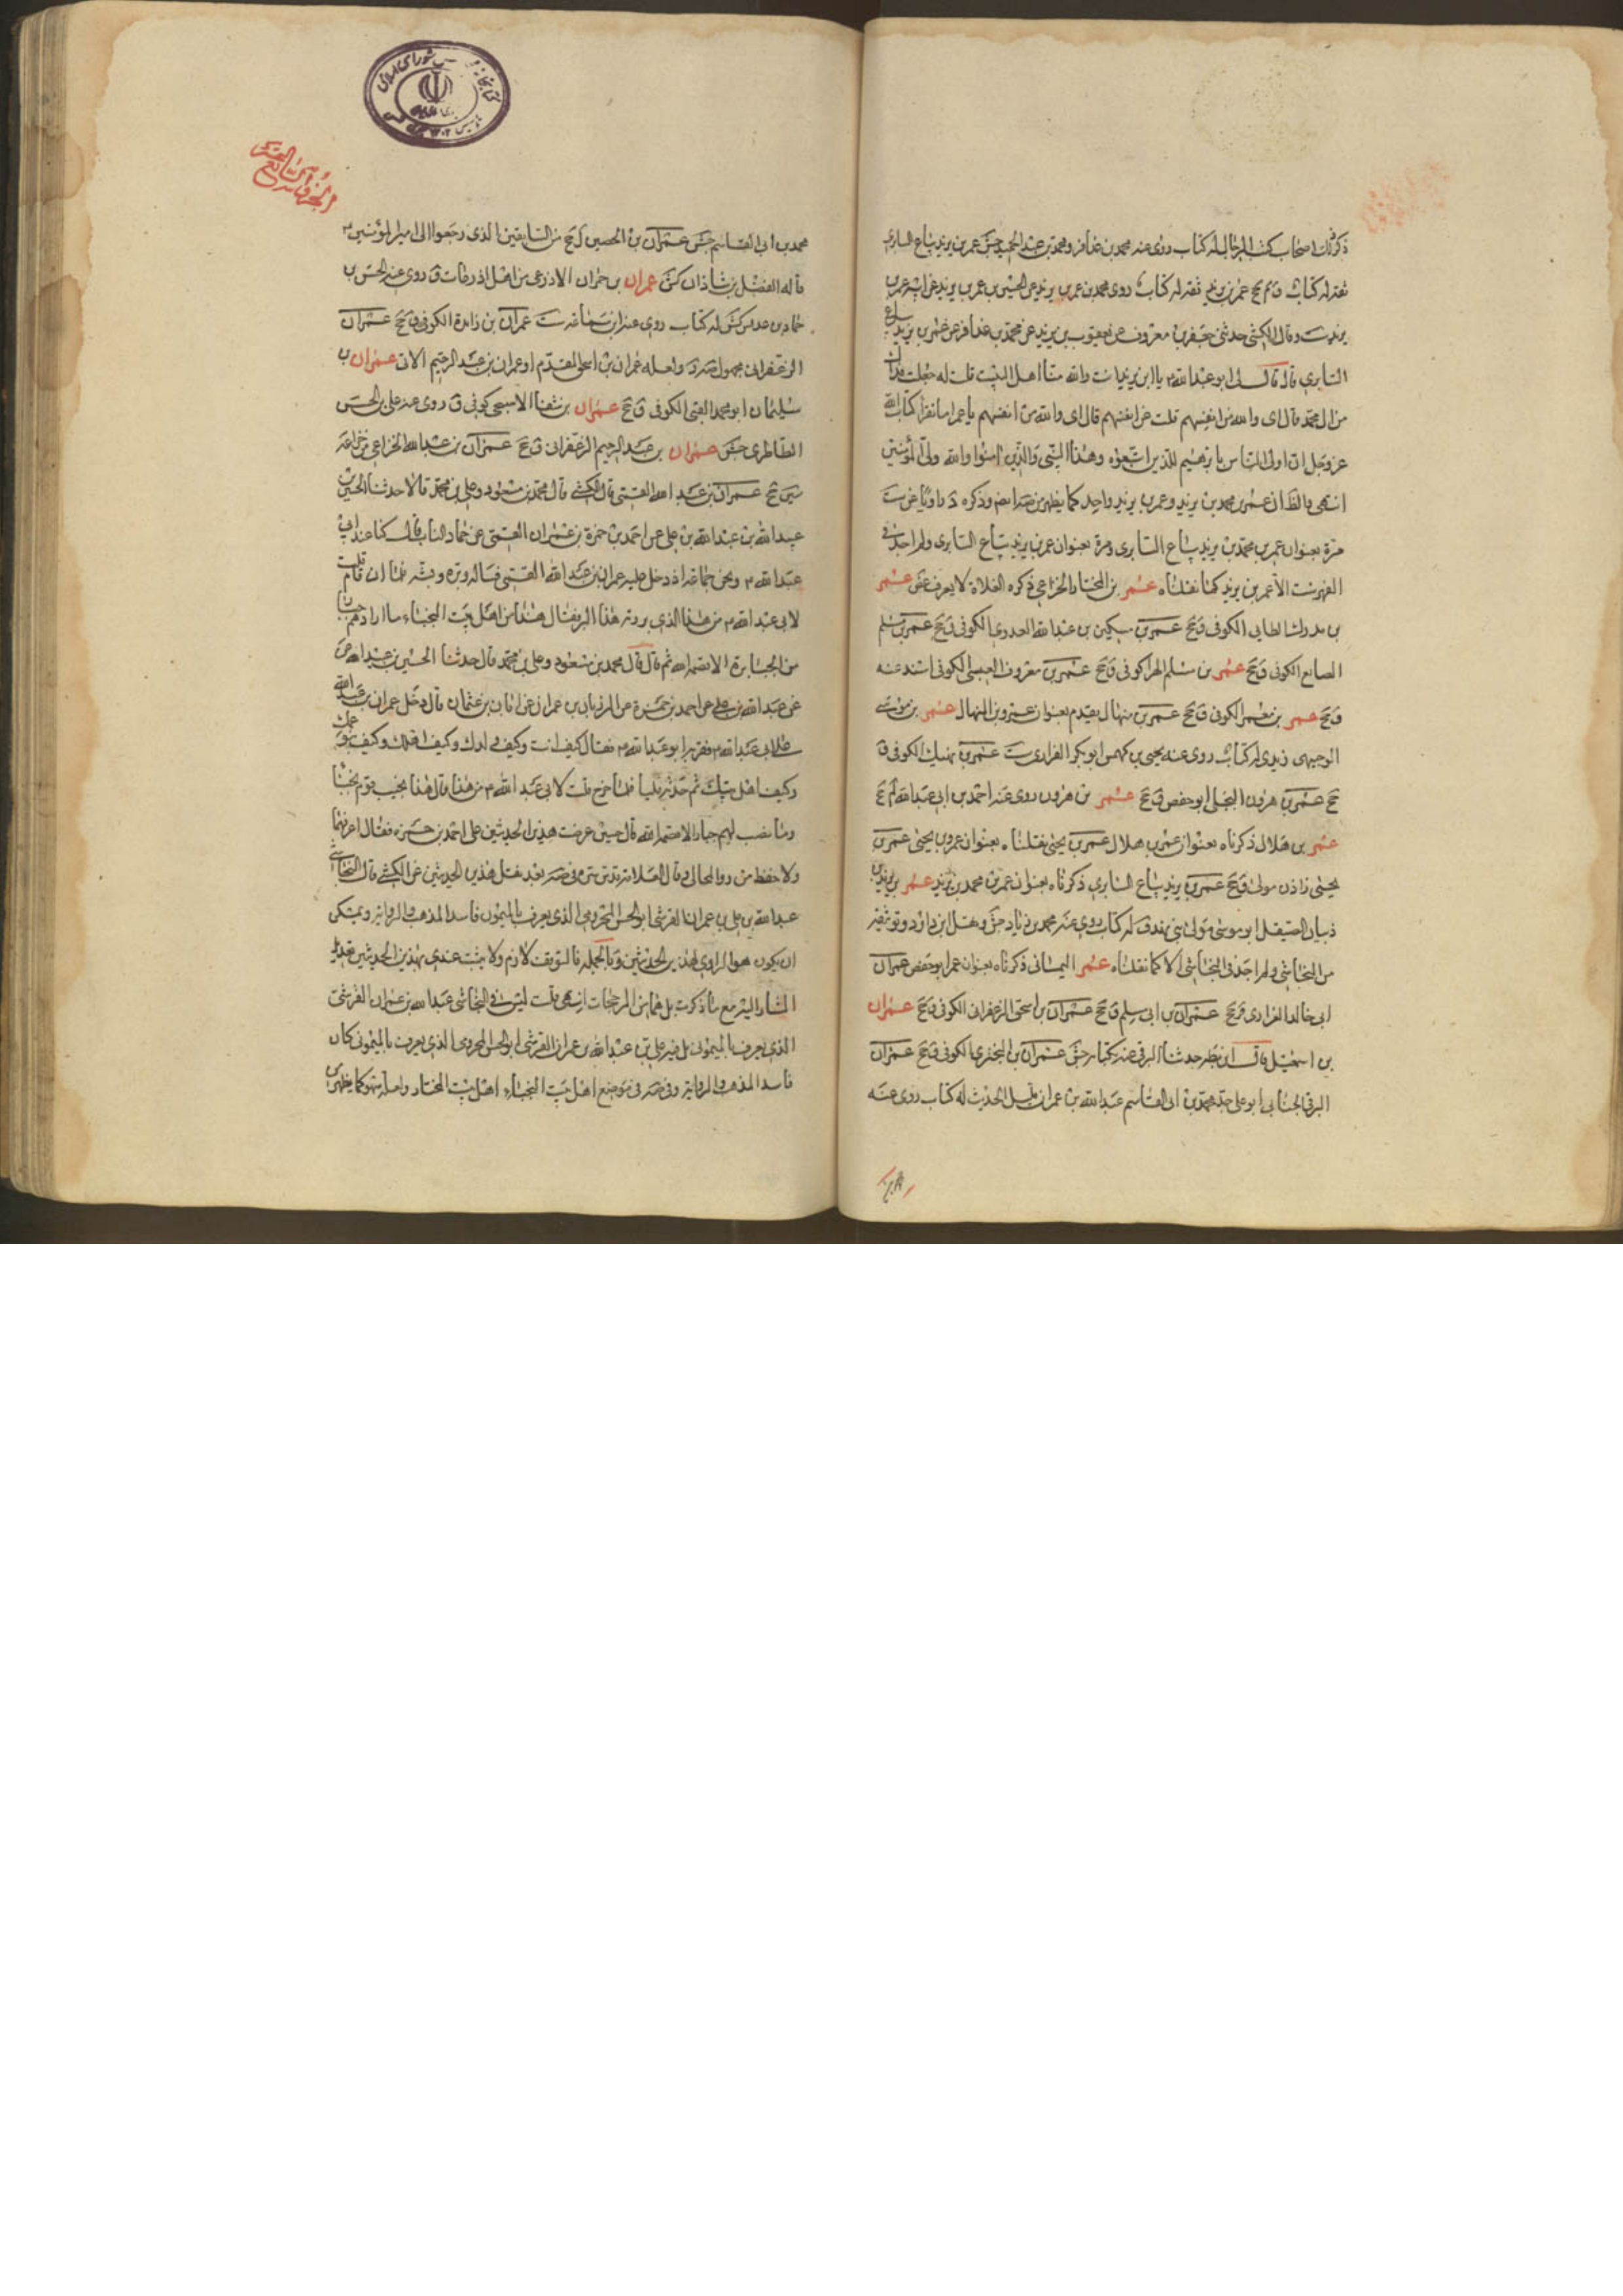 ذكر ذلك اصحاب كتب الرجال له كتاب روى عنه محمد بن عذافر ومحمد بن عبد الحميد جش عمر بن يزيد بياع السابري
ثقة له كتاب محمد بن عمر بن يزيد عن الحسين بن عمر بن يزيد عن ابيه عمر بن
يزيد ست وقال الكشي حدثني جعفر بن معروف عن يعقوب بن يزيد عن محمد بن عذافر عن عمر بن يزيد بياع
السابري قال قال لي ابو عبد الله م يا ابن يزيد انت والله منا اهل البيت قلت له جعلت فداك
من ال محمد قال اى والله من انفسهم قلت من انفسهم قال اى والله من انفسهم يا عمر اما تقرأ كتاب الله
عز وجل ان اولى الناس بابرهيم للذين اتبعوه وهذا النبي والذين امنوا والله ولي المؤمنين
انتهى والظ ان عمر بن محمد بن يزيد وعمر بن يزيد واحد كما يظهر من وذكره د
مرة بعنوان عمر بن محمد بن يزيد بياع السابري ومرة بعنوان عمر بن يزيد بياع السابري ولم اجد في
الفهرست الا عمر بن يزيد كما نقلناه عمر بن المختار الخزاعي ذكره الغلاة لا يعرف غض عمر
الكوفي ق جخ عمر بن مسكين بن عبد الله العدوي الكوفي ق جخ عمر بن مسلم
الكوفي ق جخ عمر بن مسلم الهرا كوفي ق جخ عمر بن معروف العبسي الكوفي اسند عنه
ق جخ عمر بن معمر الكوفي ق جخ عمر بن منهال يقدم بعنوان عمرو بن المنهال عمر بن موسى
الوجيهي زيدي له كتاب روى عنه يحيى بن كهمس ابو بكر الفزاري ست عمر بن نهيك الكوفي ق
جخ عمر بن هرون البجلي ابو حفص ق جخ عمر بن هرون روى عنه احمد بن ابي عبد الله لم جخ
عمر بن هلال ذكرناه بعنوان عمر بن هلال عمر بن يحيى نقلناه بعنوان عمرو بن يحيى عمر بن
يحيى زاذن مولى ق جخ عمر بن يزيد بياع السابري ذكرناه بعنوان عمر بن محمد بن يزيد عمر بن يزيد بن
ذبيان الصيقل ابو موسى مولى بني نهد ق له كتاب روى عنه محمد بن زياد جش ونقل ابن داود توثيقه
من النجاشي ولم اجد في النجاشي الا كما نقلناه عمر اليماني ذكرناه بعنوان عمر ابو حفص عمران
ابي خالد الفزاري ق جخ عمران بن ابي مسلم ق جخ عمران بن اسحق الزعفراني الكوفي ق جخ عمران
بن اسمعيل قال ابن بطة حدثنا البرقي عنه بكتابه جش عمران بن البختري الكوفي ق جخ عمران
البرقي الجنابي ابو علي جد محمد بن ابي القاسم عبد الله بن عمران قليل الحديث له كتاب روى عنه
محمد بن ابي القاسم جش عمران بن الحصين ل جخ من السابقين الذي رجعوا الى امير المؤمنين م
قاله الفضل بن شاذان كش عمران بن حمران الاذرعي من اهل اذرعات ق روى عنه الحسن بن
حماد بن جش له كتاب روى عنه ابن سماعة ست عمران بن زايدة الكوفي ق جخ عمران
الزعفراني مجهول ولعله عمران بن اسحق المقدم او عمران بن عبد الرحيم الاتي عمران بن
سليمان ابو محمد القبي الكوفي ق جخ عمران بن كوفي ق روى عنه علي بن الحسن
الطاطري جش عمران بن عبد الرحيم الزعفراني ق جخ عمران بن عبد الله الخزاعي
جخ عمران بن عبد الله القمي قال الكشي قال محمد بن مسعود وعلي بن محمد قالا حدثنا الحسين بن
عبيد الله بن عبد الله بن علي عن احمد بن حمزة بن عمران القمي عن حماد الناب قال كنا عند ابي
عبد الله م ونحن جماعة اذ دخل عليه عمران بن عبد الله القمي فساله وبره وبشه فلما ان قام قلت
لابي عبد الله م من هذا الذي بررته هذا البر فقال هذا من اهل بيت النجباء ما ارادهم جبار
من الجبابرة الا قصمه الله ثم قال قال محمد بن مسعود وعلي بن محمد قال حدثنا الحسين بن عبيد الله عن
عبد الله بن علي عن احمد بن حمزة عن المرزبان بن عمران عن ابان بن عثمان قال دخل عمران بن عبد الله
على ابي عبد الله م فقربه ابو عبد الله م فقال كيف انت وكيف ولدك وكيف اهلك وكيف بنو عمك
وكيف اهل بيتك ثم حدثه مليا فلما خرج قلت لابي عبد الله م من هذا قال هذا نجيب قوم نجباء
وما نصب لهم جبار الا قصمه الله قال حسين عرضت هذين الحديثين على احمد بن حمزة فقال اعرفهما
ولا حفظ من رواهما لي وقال العلامة قدس سره في بعد نقل هذين الحديثين عن الكشي قال النجاشي
عبد الله بن علي بن عمران القرشي ابو الحسن المخزومي الذي يعرف بالميموني فاسد المذهب والرواية ويمكن
ان يكون هو الراوي لهذين الحديثين وبالجملة فالتوقف لازم ولا يثبت عندي بهذين الحديثين تعديل
المشار اليه مع ما ذكرت بل هما من المرجحات انتهى قلت ليس في النجاشي عبد الله بن عمران القرشي
الذي يعرف بالميموني بل فيه علي بن عبد الله بن عمران القرشي ابو الحسن المخزومي الذي يعرف بالميموني كان
فاسد المذهب والرواية وفي في موضع اهل بيت النجباء اهل بيت المختار ولعله سهو كما يظهر من